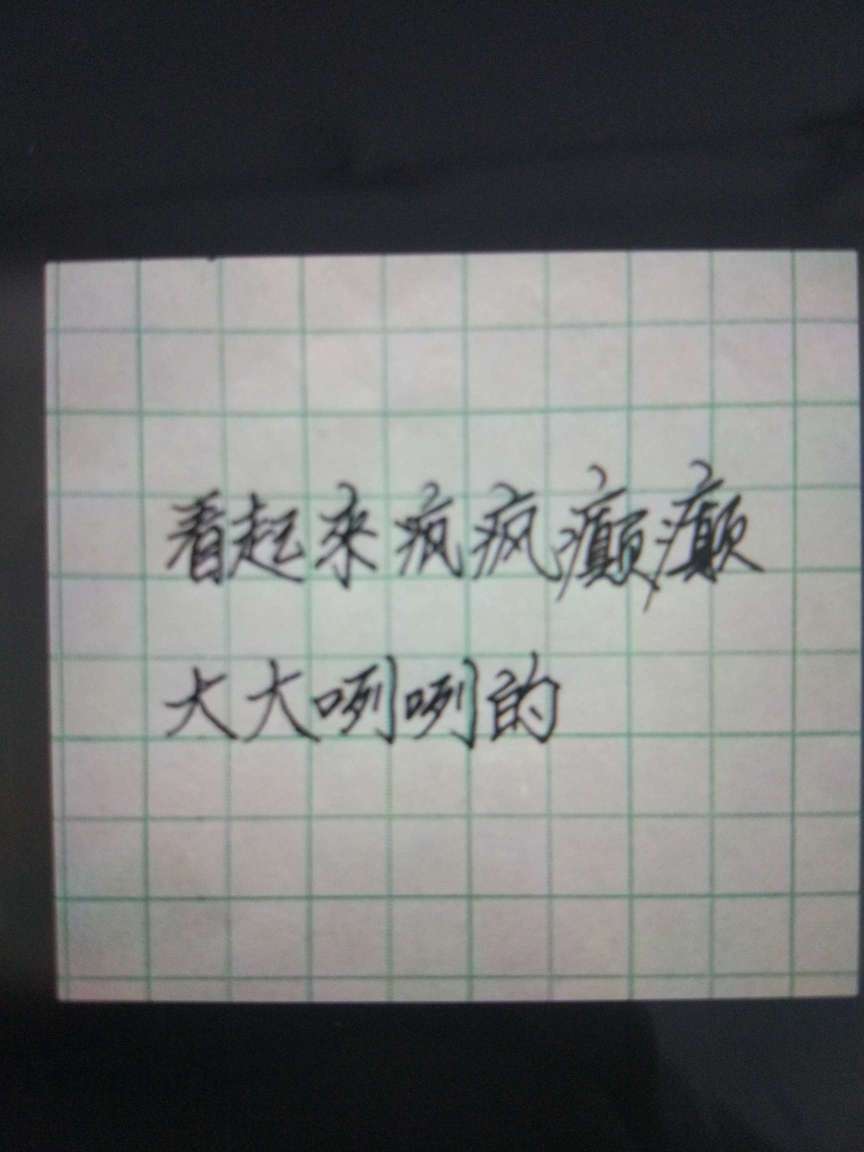 看起来疯疯癫癫
大大咧咧的